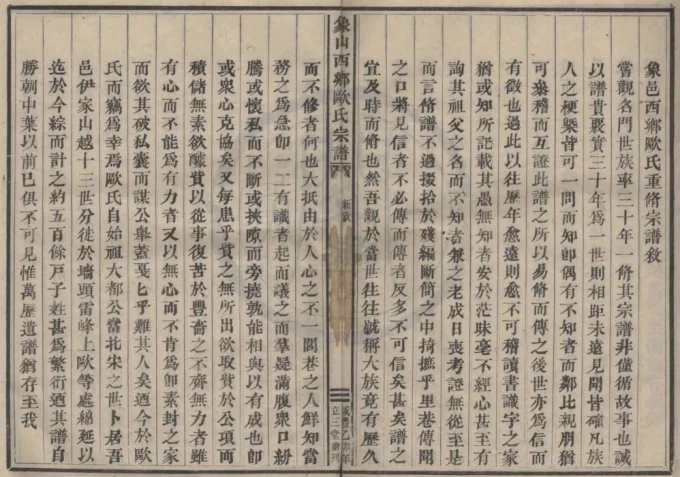 象邑西鄉歐氏重脩宗譜敘
嘗觀名門世族率三十年一脩其宗譜非僅循故事也誠
以譜貴覈實三十年爲一世則相距未遠見聞皆確凡族
人之梗槩皆可一問而知卽偶有不知者而鄰比親朋猶
可叅稽而互證此譜之所以易脩而傳之後世亦爲信而
有徵也過此以往歷年愈遠則愈不可稽讀書識字之家
猶或知所記載其愚無知者安於茫昧毫不經心甚至有
詢其祖父之名而不知者兼之老成日喪考證無從至是
而言脩譜不過掇拾於殘編斷簡之中掎摭乎里巷傳聞
之口將見信者不必傳而傳者反多不可信矣甚矣譜之
宜及時而脩也然吾觀於當世往往號稱大族竟有歷久
象山西鄉歐氏宗譜
新敘
咸豐乙卯年
立三堂重刊
而不修者何也大抵由於人心之不一閭巷之人鮮知當
務之爲急卽一二有識者起而議之而羣疑滿腹衆口紛
騰或懷私而不斷或挾隙而旁撓孰能相與以有成也卽
或衆心克協矣又每患乎貲之無所出欲取貲於公項而
積儲無素欲醵貲以從事復苦於豐嗇之不齊無力者雖
有心而不能爲有力者又以無心而不肯爲卽素封之家
而欲其破私囊而謀公舉蓋戞乎難其人矣廼今於歐
氏而竊爲幸焉歐氏自始祖大都公當北宋之世卜居吾
邑伊家山越十三世分徙於墻頭雷峰上歐等處綿延以
迄於今綜而計之約五百餘戸子姓甚爲繁衍廼其譜自
勝朝中葉以前已俱不可見惟萬歷遺譜猶存至我